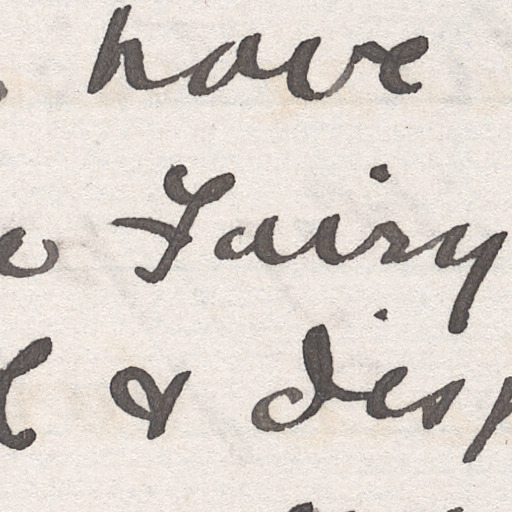 have
Fairy
& disp